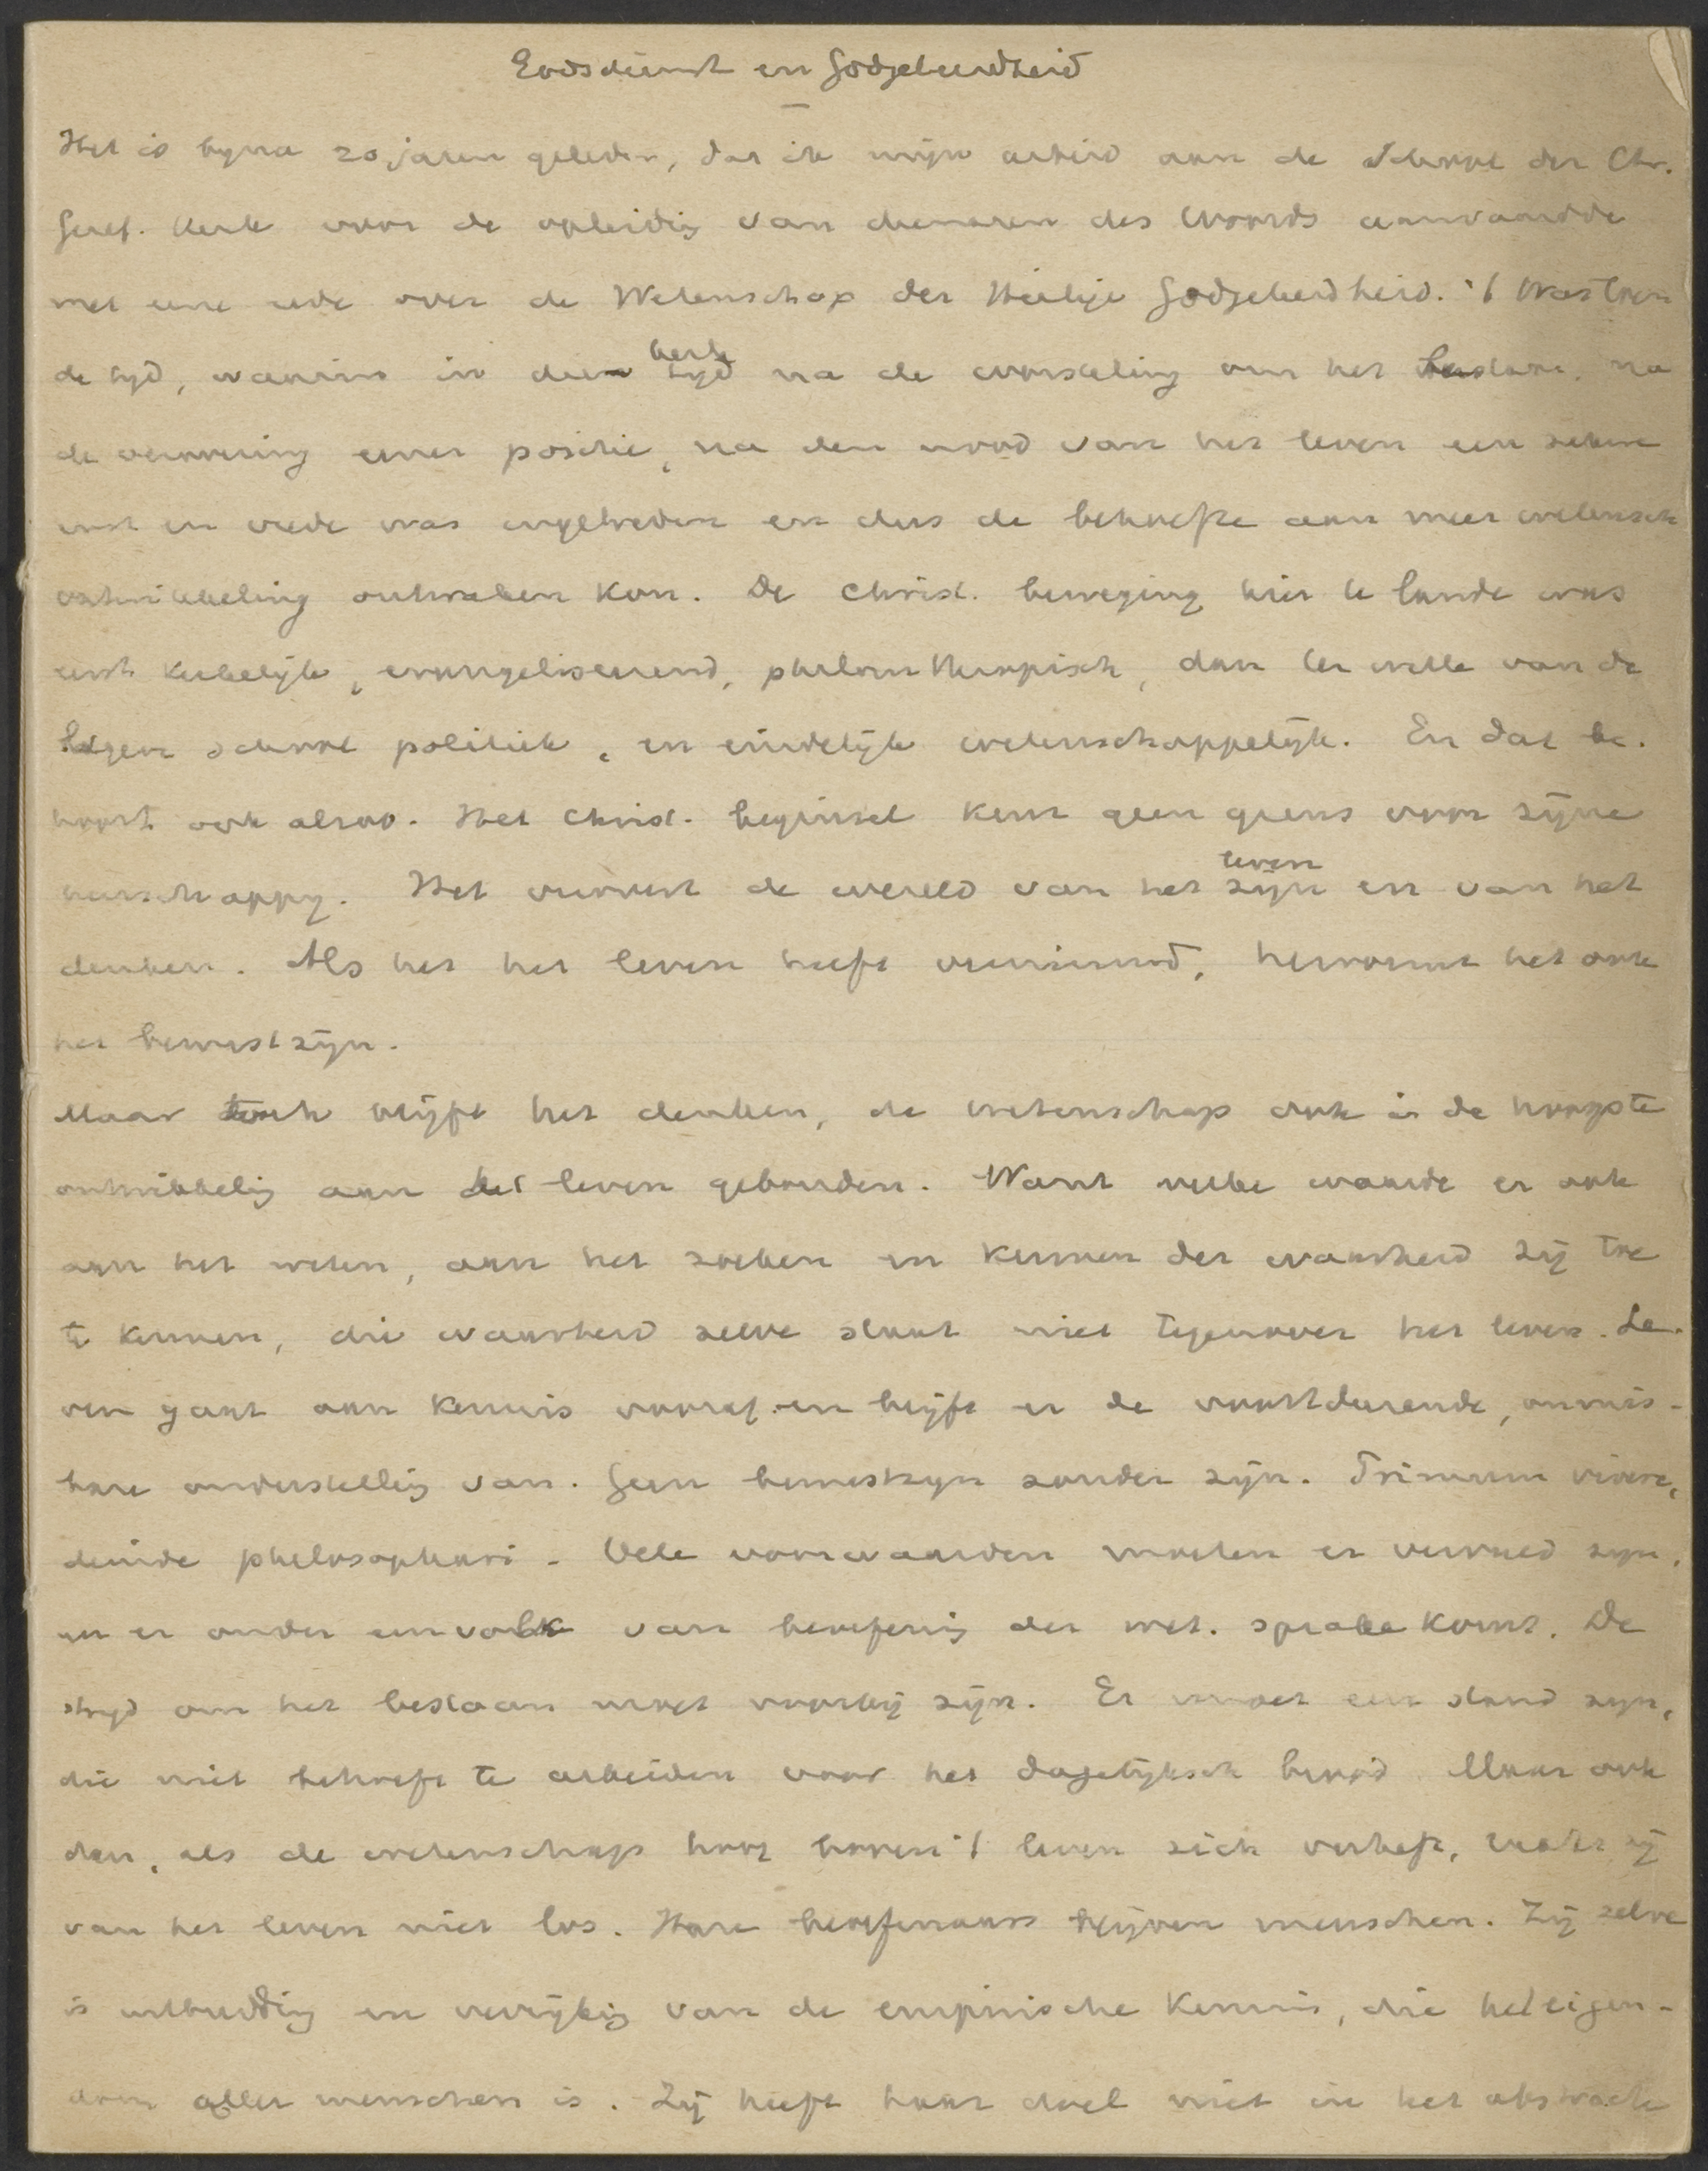 Godsdienst en Godgeleerdheid
Het is byna 20 jaren geleden, dat ik mijn arbeid aan de School der Chr.
Geref. Kerk voor de opleidig van dienaren des Woords aanvaardde
met eene rede over de Wetenschap der Heilige Godgeleerdheid. 't Was toen
de tyd, waarin in deze kerk na de worsteling om het bestaan, na
de verovering eener positie, na den nood van het leven een zekere
rust en vrede was ingetreden en dus de behoefte aan meer wetensch
ontwikkeling ontwaken kon. De Christ. beweging hier te lande was
eerst kerkelijk, evangeliserend, philanthropisch, dan ter wille van de
lagere school politiek, en eindelijk wetenschappelijk. En dat be-
hoort ook alzoo. Het Christ. beginsel kent geen grens voor zijne
heerschappy. Het verovert de wereld van het zijn leven en van het
denken. Als het het leven heeft overwinnend, hervormt het ook
het bewustzijn.
Maar toch blijft het denken, de wetenschap ook in de hoogste
ontwikkelig aan het leven gebonden. Want welke waarde er ook
aan het weten, aan het zoeken en kennen der waarheid zij toe
te kennen, die waarheid zelve staat niet tegenover het leven. Le-
ven gaat aan kennis vooraf en blijft er de voortdurende, onmis-
bare onderstellig van. Geen bewustzyn zonder zijn. Primum vivere,
deinde philosophari. Vele voorwaarden moeten er vervuld zyn,
er onder een volk van beoefenig der wet. sprake komt. De
stryd om het bestaan moet voorbij zijn. Er moet een stand zyn,
die niet behoeft te arbeiden voor het dagelijksch brood. Maar ook
dan, als de wetenschap hoog boven 't leven zich verheft, raakt zij
van het leven niet los. Hare beoefenaars blijven menschen. Zij zelve
is uitbreidig en verrijkig van de empirische kennis, die het eigen-
dom aller menschen is. Zij heeft haar doel niet in het abstracte